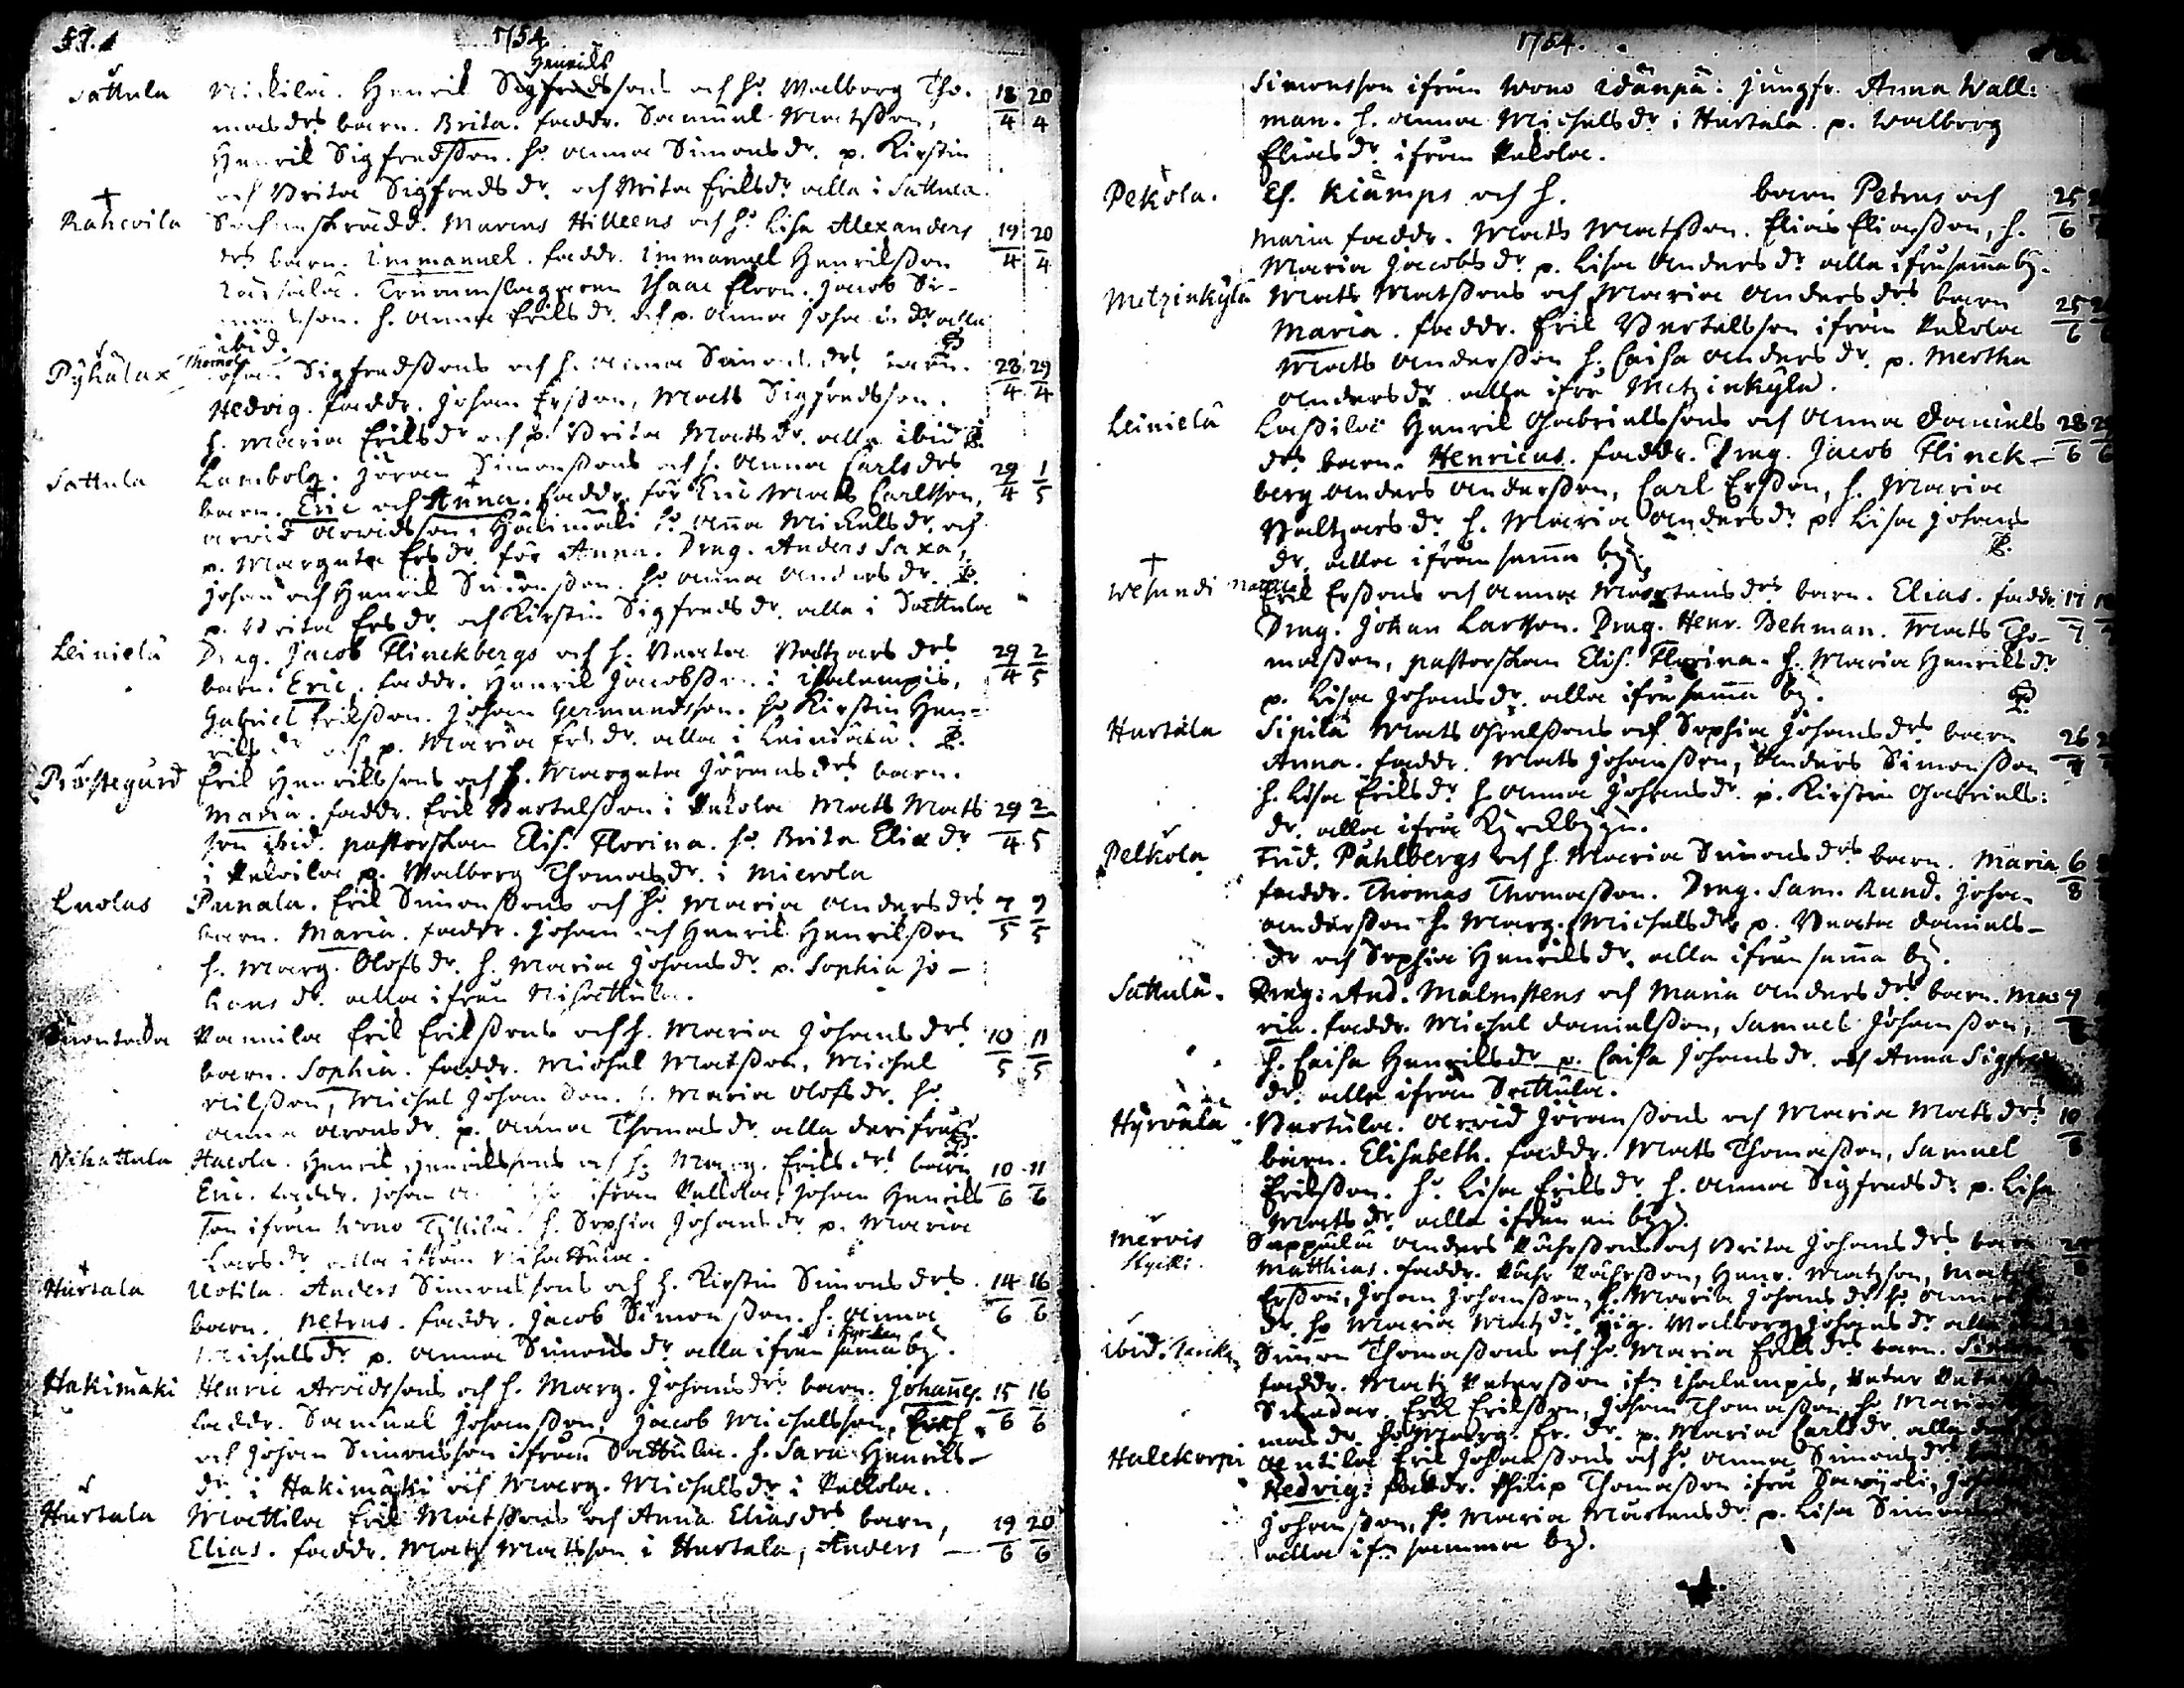 57.
1754
Henrics
Sattula Nickilä. Henric Sigfredssons och ho Walborg Tho- 18/4 20/4
mas drs barn. Brita. faddr. Samuel Matsson,
Henric Sigfredsson. ho Anna Simons dr. p. Kirstin
och Brita Sigfreds dr. och Brita Erics dr alla i Sattula.
Rahcoila Sochnskrädd. Marcus Hilleens och ho Lisa Alexanders 19/4 20/4
drs barn. Immanuel. faddr. Immanuel Henricsson
Trummslagaren Isaac Floor. Jacob Si-
monsson. h. Anna Erics dr. och p. Anna Joha ns dr alla
ibid.
Pyhälax Thomola Johan Sigfredssons och h. Anna Simons drs barn. 28/4 29/4
Hedvig. faddr. Johan Ersson, Matts Sigfredsson.
h. Maria Erics dr och p. Brita Matts dr. alla ibid.
Sattula Lambola. Jöran Simonssons och h. Anna Carls drs 29/4 1/5
barn. Eric och Anna. faddr. för Eric Matts Carlsson,
Arvid Arvidsson i Hakimäki ho Anna Mickels dr. och
p. Margreta Ers dr. för Anna. Drag. Anders Saxa,
Johan och Henric Simonsson. ho Anna Anders dr.
p. Brita Ers dr. och Kirstin Sigfreds dr. alla i Sattula
Leinielä Drag. Jacob Flinckbergs och h. Beata Baltzars drs 29/4 2/5
barn. Eric. faddr. Henric Jacobsson i Ihalempis,
Gabriel Ericsson. Johan Germundsson. ho Kirstin Hen-
rics dr och p. Maria Ers dr. alla i Leinialä.
Prästegård Eric Henricssons och h. Margreta Jörans drs barn.
Maria. faddr. Eric Bertelsson i Pecola Matts Mats 29/4 2/5
son ibid. pastorskan Elis. Florina. ho Brita Eliæ dr
i Pecoila p. Walborg Thomas dr. i Mierola
Luolas Punala. Eric Simonssons och ho Maria Anders drs 7/5 9/5
barn. Maria. faddr. Johan och Henric Henricsson
h. Marg. Olofs dr. h. Maria Johans dr. p. Sophia Jo-
hans dr. alla ifrån Nihattula.
Suontaka Pannila Eric Ericssons och h. Maria Johans drs 10/5 11/5
barn. Sophia. faddr. Michel Matsson, Michel
Nilsson, Michel Johansson. h. Maria Olofs dr. ho
Anna Arons dr. p. Anna Thomas dr. alla derifrån.
Nihattula Hacola. Henric Henricssons och h. Marg. Erics drs barn 10/6 11/6
Eric. faddr. Johan ifrån Pellola, Johan Henrics
son ifrån Wono Tykilä. h. Sophia Johans dr p. Maria
Lars dr alla ifrån Nihattula.
Hurtala Uotila. Anders Simonssons och h. Kirstin Simons drs 14/6 16/6
barn. Petrus. faddr. Jacob Simonsson. h. Anna
Michels dr p. Anna Simons dr alla ifrån samma by.
Hakimäki Henric Arvidssons och h. Marg. Johans drs barn. Johannes. 15/6 16/6
faddr. Samuel Johansson, Jacob Michelsson,
och Johan Simonsson ifrån Sattula. h. Sara Henrics-
dr. i Hakimäki och Marg. Michels dr i Pellola.
Hurtala Mattila Eric Matssons och Anna Elias drs barn, 19/6 20/6
Elias. faddr. Matz Matsson i Hurtala, Anders
1754.
Simonsson ifrån Wono Idänpä: Jungfr. Anna Wall:
man. h. Anna Michels dr i Hurtala. p. Walborg
Elias dr. ifrån Pekola.
Pekola. Es. Kiämps och h. barn Petrus och 25/6
Maria faddr. Matts Matsson. Elias Eliasson, h.
Maria Jacobs dr p. Lisa Anders dr alla ifrå samma by.
Metzinkylä Matts Matssons och Maria Anders drs barn 25/6
Maria. faddr. Eric Bertelsson ifrån Pekola
Matts Andersson h. Caisa Anders dr. p. Mertha
Anders dr alla ifrå Metzinkylä.
Leinielä Lassilas Henric Gabrielssons och Anna Daniels 28/6
drs barn. Henricus. faddr. Drag. Jacob Flinck-
berg Anders Andersson, Carl Ersson, h. Maria
Baltzars dr h. Maria Anders dr p. Lisa Johans
dr. alla ifrån samma by.
Wesundi Eric Erssons och Anna Mårtens drs barn. Elias. faddr. 17/7
Drag. Johan Larsson. Drag. Henr. Behman. Matts Tho-
masson, pastorskan Elis. Florina. h. Maria Henrics dr
p. Lisa Johans dr. alla ifrå samma by.
Hurtala Sipilä Matts Grelssons och Sophia Johans drs barn 26/7
Anna. faddr. Matts Johansson, Anders Simonsson
h. Lisa Erics dr h. Anna Johans dr. p. Kirstin Gabriels:
dr. alla ifrå Kyrckbyyn.
Pelkola Frid. Påhlbergs och h. Maria Simons drs barn. Maria 6/8
faddr. Thomas Thomasson. Drag. Sam. Rund. Johan
Andersson h. Marg. Michels dr p. Beata Daniels-
dr och Sophia Henrics dr. alla ifrån samma by.
Sattula. Drag: And. Malmstens och Maria Anders drs barn. Ma-
ria. faddr. Michel Danielsson, Samuel Johansson,
h. Caisa Henrics dr p. Caisa Johans dr. och Anna Sigfreds
dr. alla ifrån Sattula.
Hyrvälä Bertula. Arvid Jöranssons och Maria Matts drs 10/8
barn. Elisabeth. faddr. Matts Thomasson, Samuel
Ericsson. ho Lisa Erics dr h. Anna Sigfreds dr p. Lisa
Matts dr. alla ifrån en by.
Mervis Seppälä Anders Påhrssons och Brita Johans drs barn
Matthias. faddr. Påhr Påhrsson, Henr. Matzson, Matz
Ersson, Johan Johansson, h. Maria Johans dr ho Anna
dr. ho Maria Matz dr. pig. Walborg Johans dr alla
ibid. Simon Thomassons och ho Maria Erics drs barn.
faddr. Matz Petersson ifr. Ihalempis, Peter
Eric Ericsson, Johan Thomasson ho Maria
mas dr. ho Marg. Er. dr. p. Maria Carls dr. alla
Halekorpi Eric Johanssons och ho Anna Simons drs
Hedvig: faddr. Philip Thomasson ifrå
Johansson, ho Maria Mårtens dr p. Lisa Simons
alla ifr. samma by.